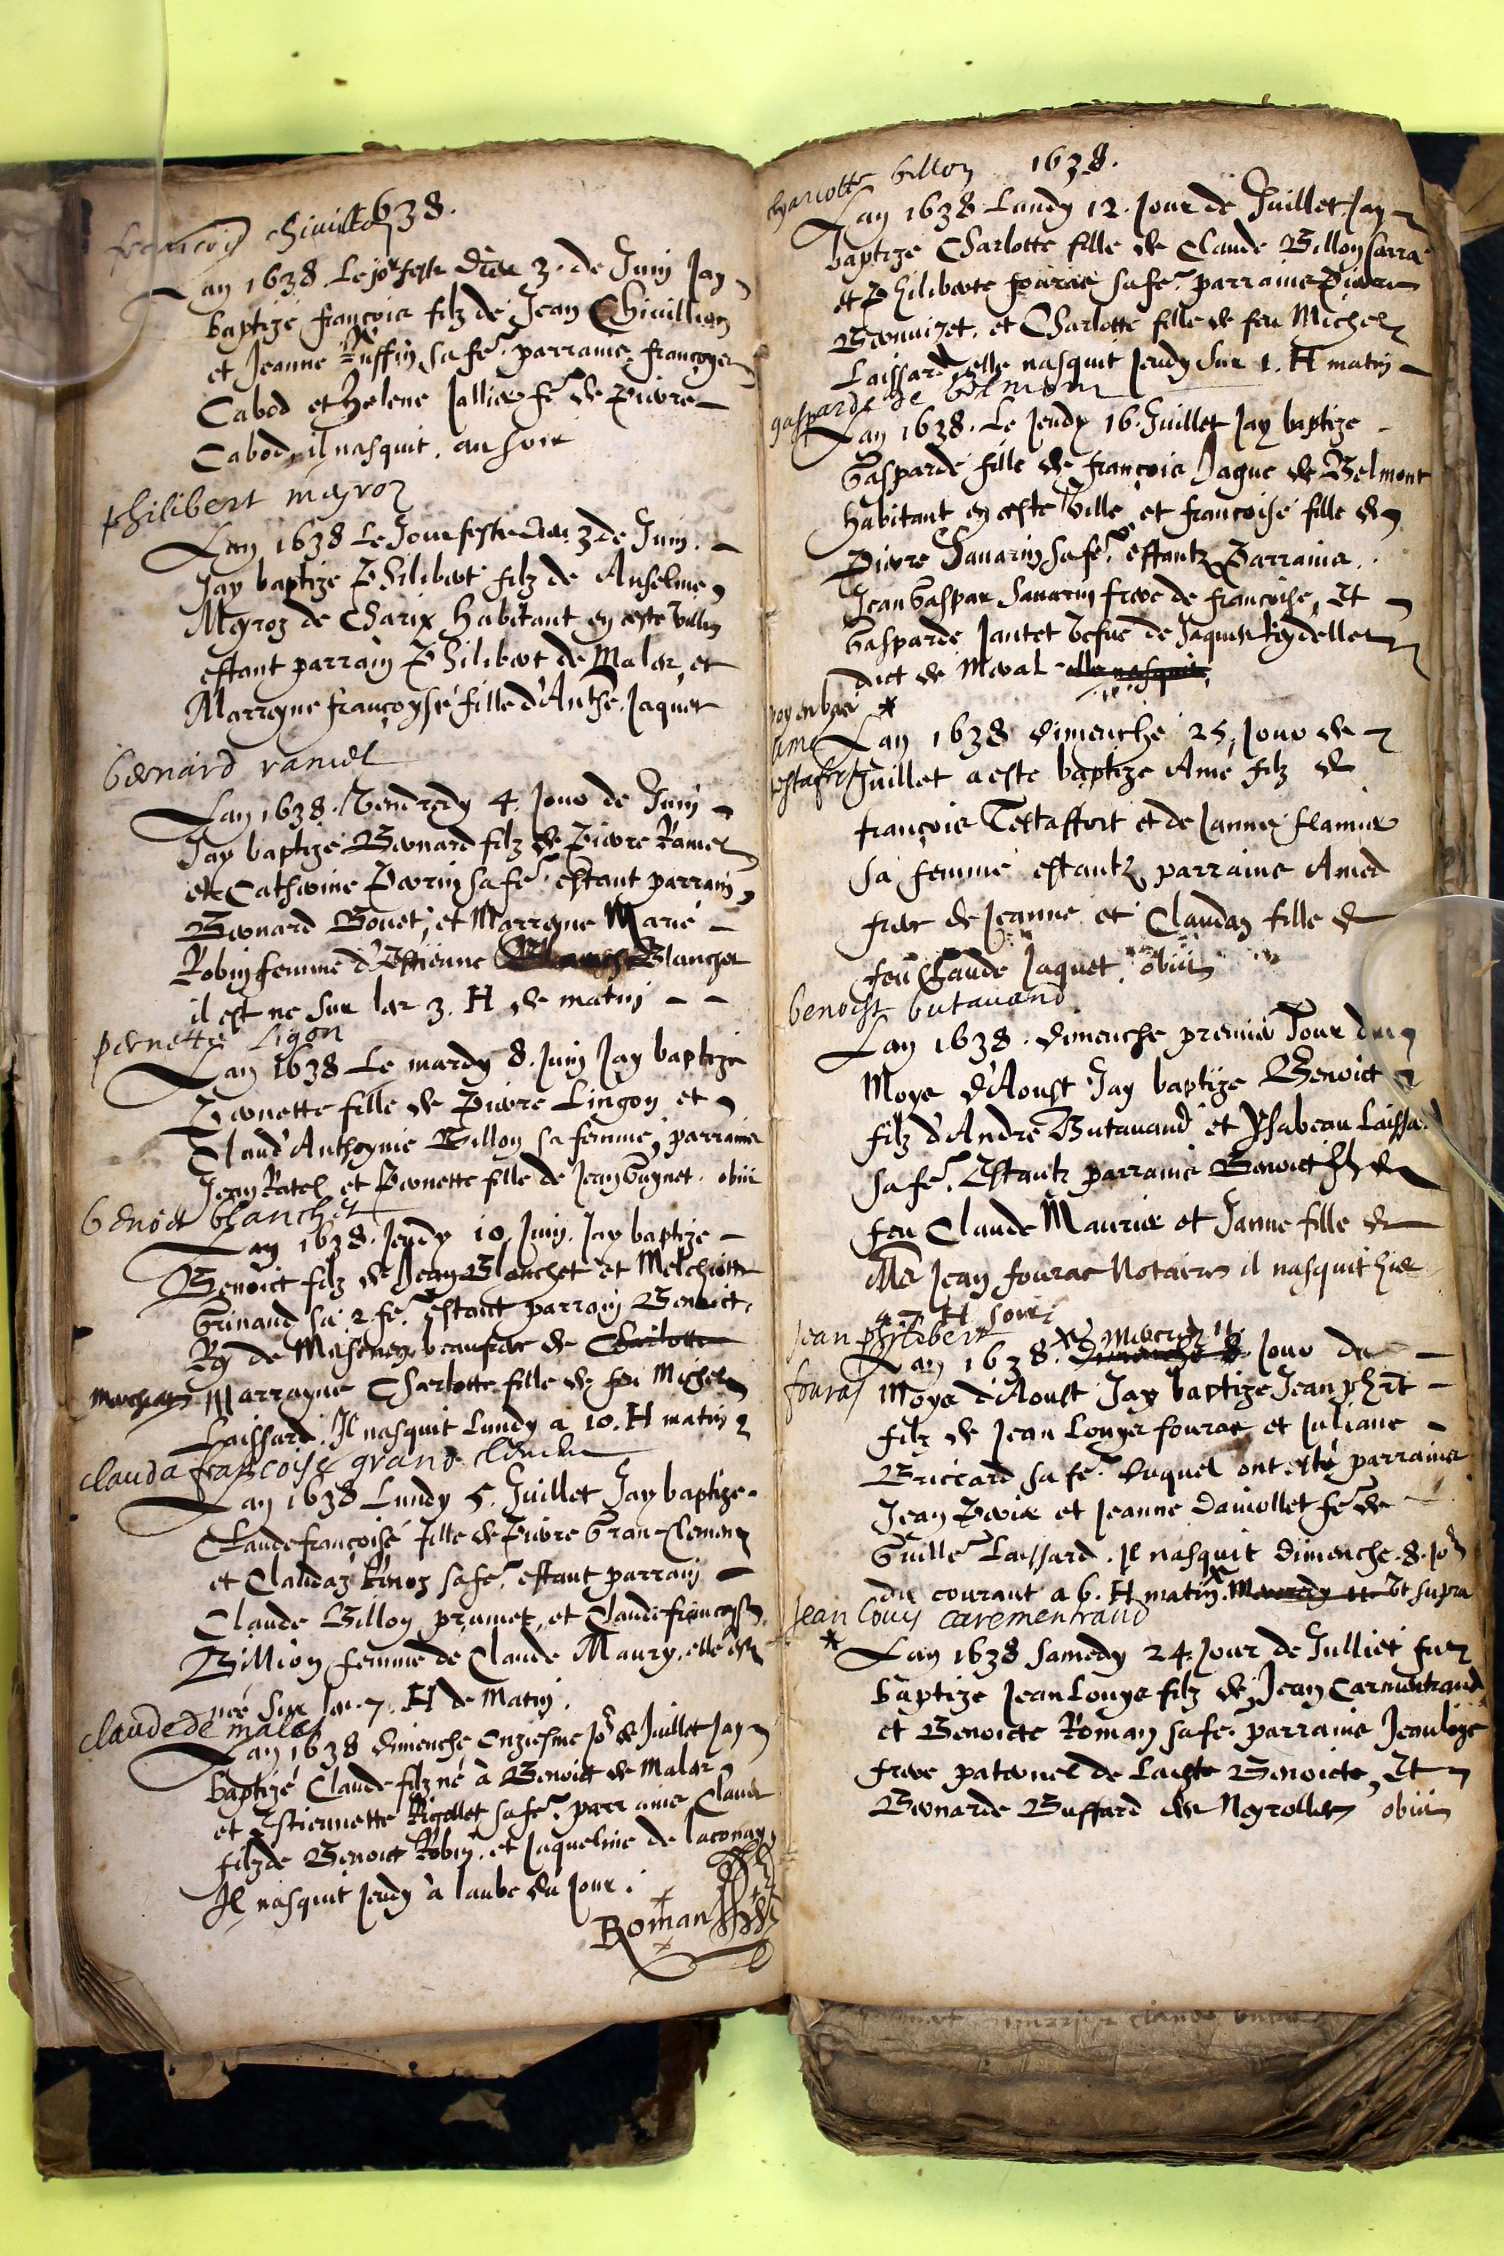 1638.
francois chivillion
Lan 1638 Le jor feste Dieu 3. de Juin Jay
baptizé françois filz de Jean Chivillion
et Jeanne Ruffin sa fe. parrains françoys
Cabod et Helene Jallier fe de Pierre
Cabod, il nasquit. au soir
philibert meyroz
Lan 1638 Le Jour feste Dieu 3 de Juin.
Jay baptize Philibert filz de Anselme
Meyroz de Charix habitant en ceste ville
estant parrain Philibert de Malar et
Marreyne françoyse fille d'Anthe. Jaquet
bernard ramel
Lan 1638. Vendredy 4. Jour de Juin
Jay baptizé Bernard filz de Pierre Ramel
et Catherine Perrin sa fe. estant parrain
Bernard Bouet, et Marreyne Marie
Robin femme d'Estienne Blanchet
il est ne sur les 3. H de matin
pernette ligon
Lan 1638 Le mardy 8. Juin Jay baptize
Pernette fille de Pierre Lingon et
Claud'Anthoynie Billon sa femme, parrains
Jean Ratel et Pernette fille de Jean Guynet. obiit
benoit blanchet
Lan 1638. Jeudy 10. Juin. Jay baptize
Benoict filz de Jean Blanchet et Melchiotte
Grinand sa 2. fe. estant parrain Benoict
Rey de Massenex beaufrere de Charlotte
Marrayne Charlotte fille de feu Michel
Laissard. Il nasquit Lundy a 10. H matin
clauda francoise grand clement
Lan 1638 Lundy 5. Juillet Jay baptize.
Claude françoise fille de Pierre Gran-Clement
et Claudaz sa fe. estant parrain
Claude Billon prumet, et Claude françoyse
Billion femme de Claude Maury. elle est
née sur les 7. H de Matin.
claude de malar
Lan 1638 dimenche Onziesme Jor de Juillet Jay
baptizé Claude filz né à Benoict de Malar
et Estiennette Rigollet sa fe. parrains Claude
filz de Benoict Robin. et Jaqueline de Laconay
Il nasquit Jeudy à laube du Jour.
Roman
1638.
charlotte billon
Lan 1638 Lundy 12. Jour de Juillet Jay
baptize Charlotte fille de Claude Billon Sarra
et Philiberte fourar sa fe. parrains Pierre
Bonnizet. et Charlotte fille de feu Michel
Laissard, elle nasquit Jeudy sur 1. H matin
gasparde de belmont
Lan 1638. Le Jeudy 16. Juillet Jay baptize
Gasparde fille de françois Dague de Belmont
habitant en ceste Ville, et françoise fille de
Pierre Savarin sa fe. estantz Parrains.
Jean Gaspar Savarin frere de françoise, Et
Gasparde Jantet vefve de Jaques Reydellet
dict de Meval elle nasquit
voy en bas *
ame testafort
Lan 1638 dimenche 25. Jour de
Juillet a este baptize Ame filz de
françois Testaffort et de Jannez flamier
sa femme estantz parrains Amed
frere de Jeanne et Claudaz fille de
feu Claude Jaquet. obiit
benoist butavand
Lan 1638. dimenche premier Jour du
Moys d'Aoust Jay baptize Benoict
filz d'André Butavand et Ysabeau Laissard
sa fe. Estantz parrains Benoict filz de
feu Claude Maurier et Janne fille de
Me Jean fourar Notaire il nasquit hier
a 7 H soir.
jean philibert fourar
Lan 1638. Dimenche 8. Mercredy 11. Jour du
Moys d'Aoust Jay baptize Jean Philt
filz de Jean Louys fourar et Juliane
Briccard sa fe. duquel ont esté parrains
Jean Perier et Jeanne Daniollet fe de
Guille. Laissard. Il nasquit dimenche 8. Jor
du courant a 6. H matin. Mercredy 11 Vt supra
jean louys carementrand
* Lan 1638 Samedy 24. Jour de Julliet fut
baptize Jean Louys filz de Jean Carementrand
et Benoicte Roman sa fe. parrains Jean loys
frere paternel de Laditte Benoicte, Et
Bernarde Buffard de Neyrolles obiit